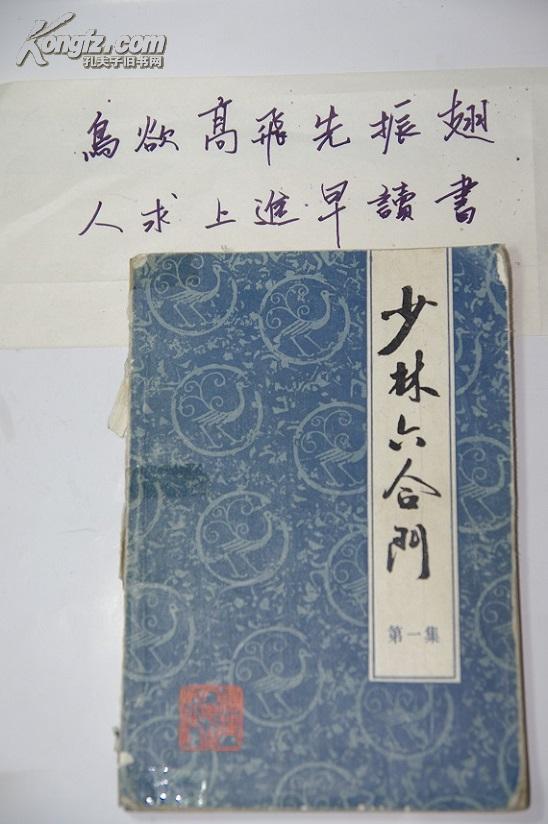 Kongfz.com
孔夫子旧书网
鳥欲高飛先振翅
人求上進早讀書
少林六合門
第一集